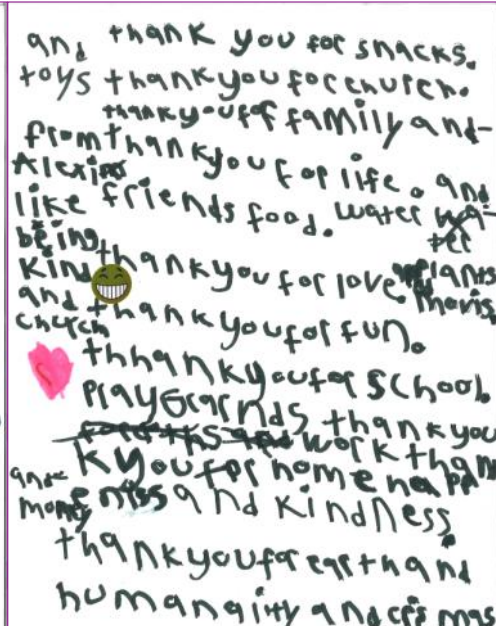 and thank you for snacks.
toys thankyou for church.
thankyou for family and-
from thankyou for life. and
Alexis
like friends food. water
being
kind thankyou for love. plants
movis
and thankyou for fun.
church
thhankyou for school.
playGrarnds thankyou
work than
kyou for home happ
and
money eniss and kindness.
thankyou for earth and
humanaity and crismas